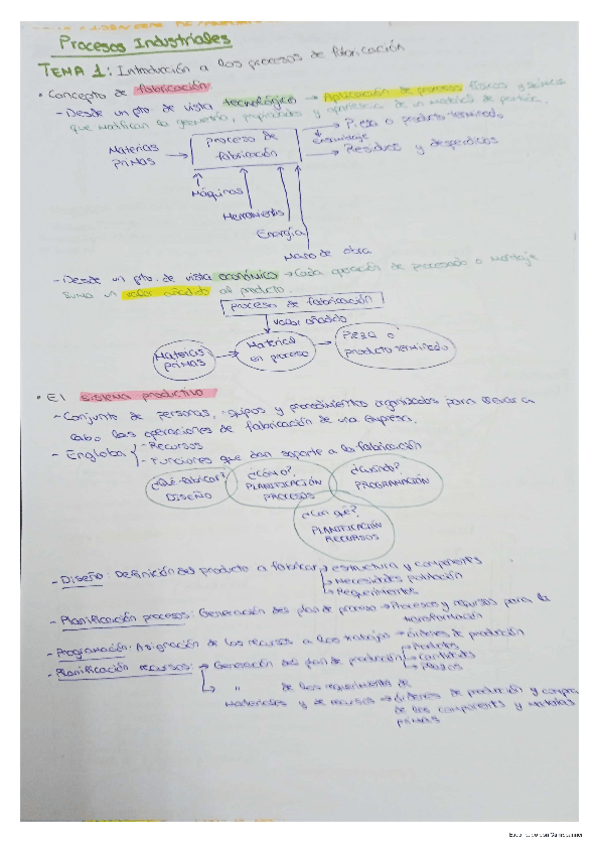 Procesos Industriales
TEMA 1: Introducción a los procesos de fabricación
• Concepto de fabricación
- Desde un pto de vista tecnológico → Aplicación de procesos físicos y químicos
que modifican la geometría, propiedades y apariencia de un material de partida.
Materias primas → proceso de fabricación → Pieza o producto terminado
↳ ensamblaje
→ Residuos y desperdicios
Máquinas
Herramientas
Energía
Mano de obra
- Desde un pto. de vista económico → Cada operación de procesado o montaje
suma un valor añadido al producto.
proceso de fabricación
valor añadido
Materias primas → Material en proceso → Pieza o producto terminado
• El sistema productivo
- Conjunto de personas, equipos y procedimientos organizados para llevar a
cabo las operaciones de fabricación de una empresa.
- Engloba - Recursos
- Funciones que dan soporte a la fabricación
¿Qué fabricar? DISEÑO
¿Cómo? PLANIFICACIÓN PROCESOS
¿Cuándo? PROGRAMACIÓN
¿Con qué? PLANIFICACIÓN RECURSOS
- Diseño: Definición del producto a fabricar → estructura y components
↳ Necesidades población
↳ Requerimientos
- Planificación procesos: Generación del plan de proceso → Procesos y recursos para la
transformación
- Programación: Asignación de los recursos a los trabajos → órdenes de producción
- Planificación recursos: → Generación del plan de producción → Productos
↳ Cantidades
↳ Plazos
↳ " de los requerimientos de
Materiales y de recursos → órdenes de producción y compra
de los components y materias
primas